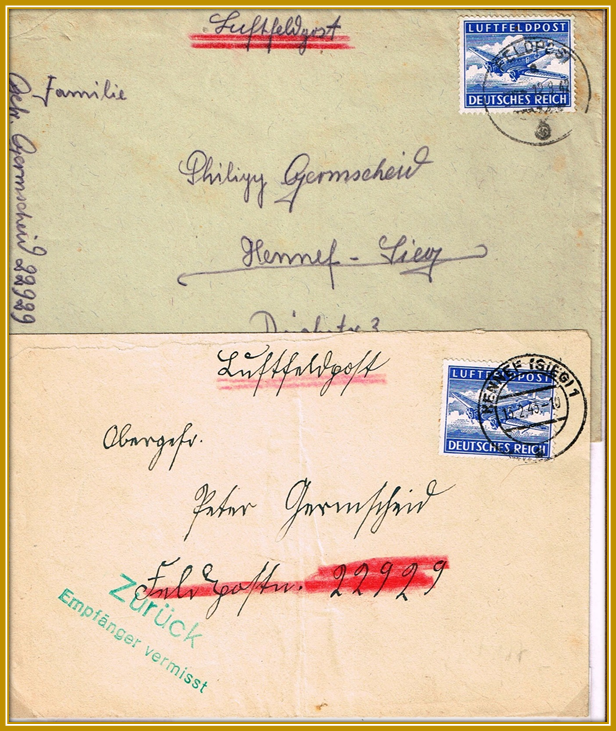 Luftfeldpost
LUFTFELDPOST
DEUTSCHES REICH
FELDPOST
Familie
Philipp Germscheid
Hennef - Sieg
Gefr. Germscheid 22929
Luftfeldpost
LUFTFELDPOST
DEUTSCHES REICH
HENNEF (SIEG) 1
.2.43.-10
Obergefr.
Peter Germscheid
Feldpostn. 22929
Zurück
Empfänger vermisst